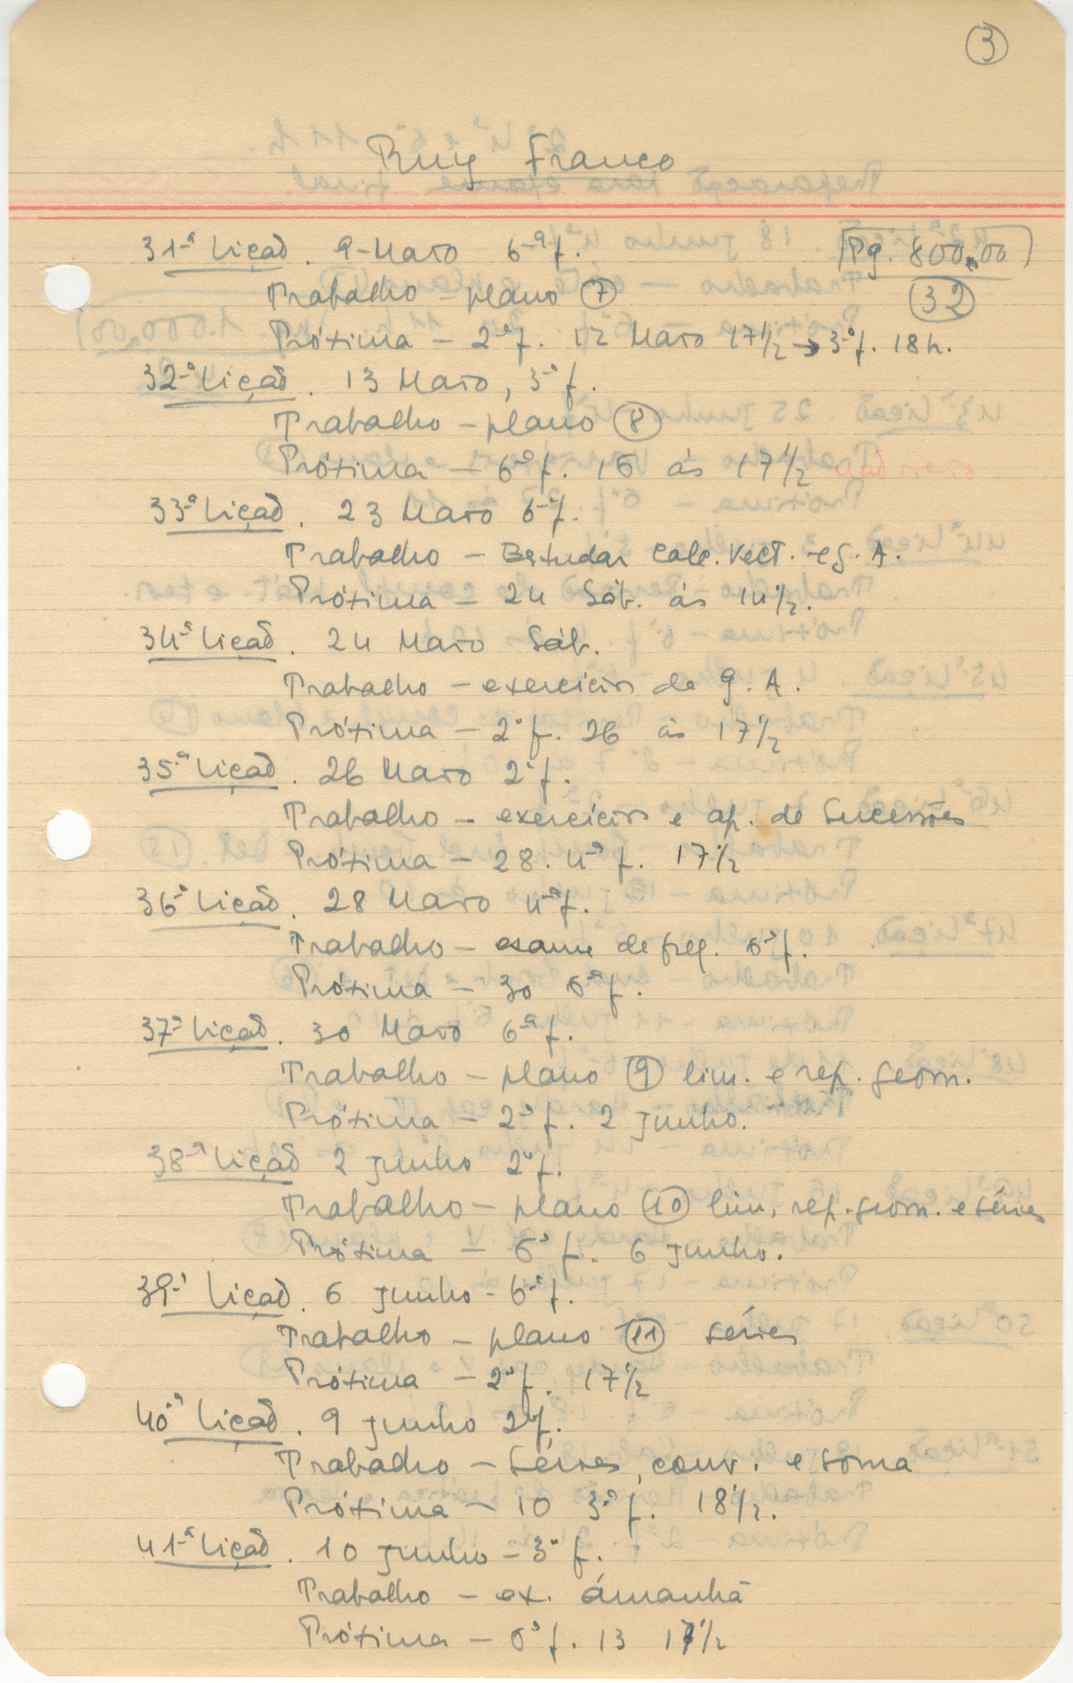 3
Ruy Franco
31-ª Lição. 9-Março 6-ª f. Pg. 800,00
Trabalho - plano 7 32
Próxima - 2-ª f. 12 Março 17 1/2 → 3-ª f. 18 h.
32-ª Lição. 13 Março, 3-ª f.
Trabalho - plano 8
Próxima - 6-ª f. 16 às 17 1/2
33-ª Lição. 23 Março 6-ª f.
Trabalho - Estudar Calc. Vect. - g. A.
Próxima - 24 Sáb. às 14 1/2.
34-ª Lição. 24 Março Sáb.
Trabalho - exercícios de g. A.
Próxima - 2ª f. 26 às 17 1/2
35-ª Lição. 26 Março 2ª f.
Trabalho - exercícios e ap. de Sucessões
Próxima - 28. 4-ª f. 17 1/2
36-ª Lição. 28 Março 4-ª f.
Trabalho - exame de freq. 6ª f.
Próxima - 30 6-ª f.
37ª Lição. 30 Março 6-ª f.
Trabalho - plano 9 lim. e rep. geom.
Próxima - 2ª f. 2 Junho.
38-ª Lição 2 Junho 2ª f.
Trabalho - plano 10 lim, rep. geom. e séries
Próxima - 6ª f. 6 Junho.
39-ª Lição. 6 Junho - 6-ª f.
Trabalho - plano 11 séries
Próxima - 2ª f. 17 1/2
40-ª Lição. 9 Junho 2ª f.
Trabalho - Séries, conv. e soma
Próxima - 10 3-ª f. 18 1/2.
41-ª Lição. 10 Junho - 3ª f.
Trabalho - ex. ámanhã
Próxima - 6ª f. 13 17 1/2